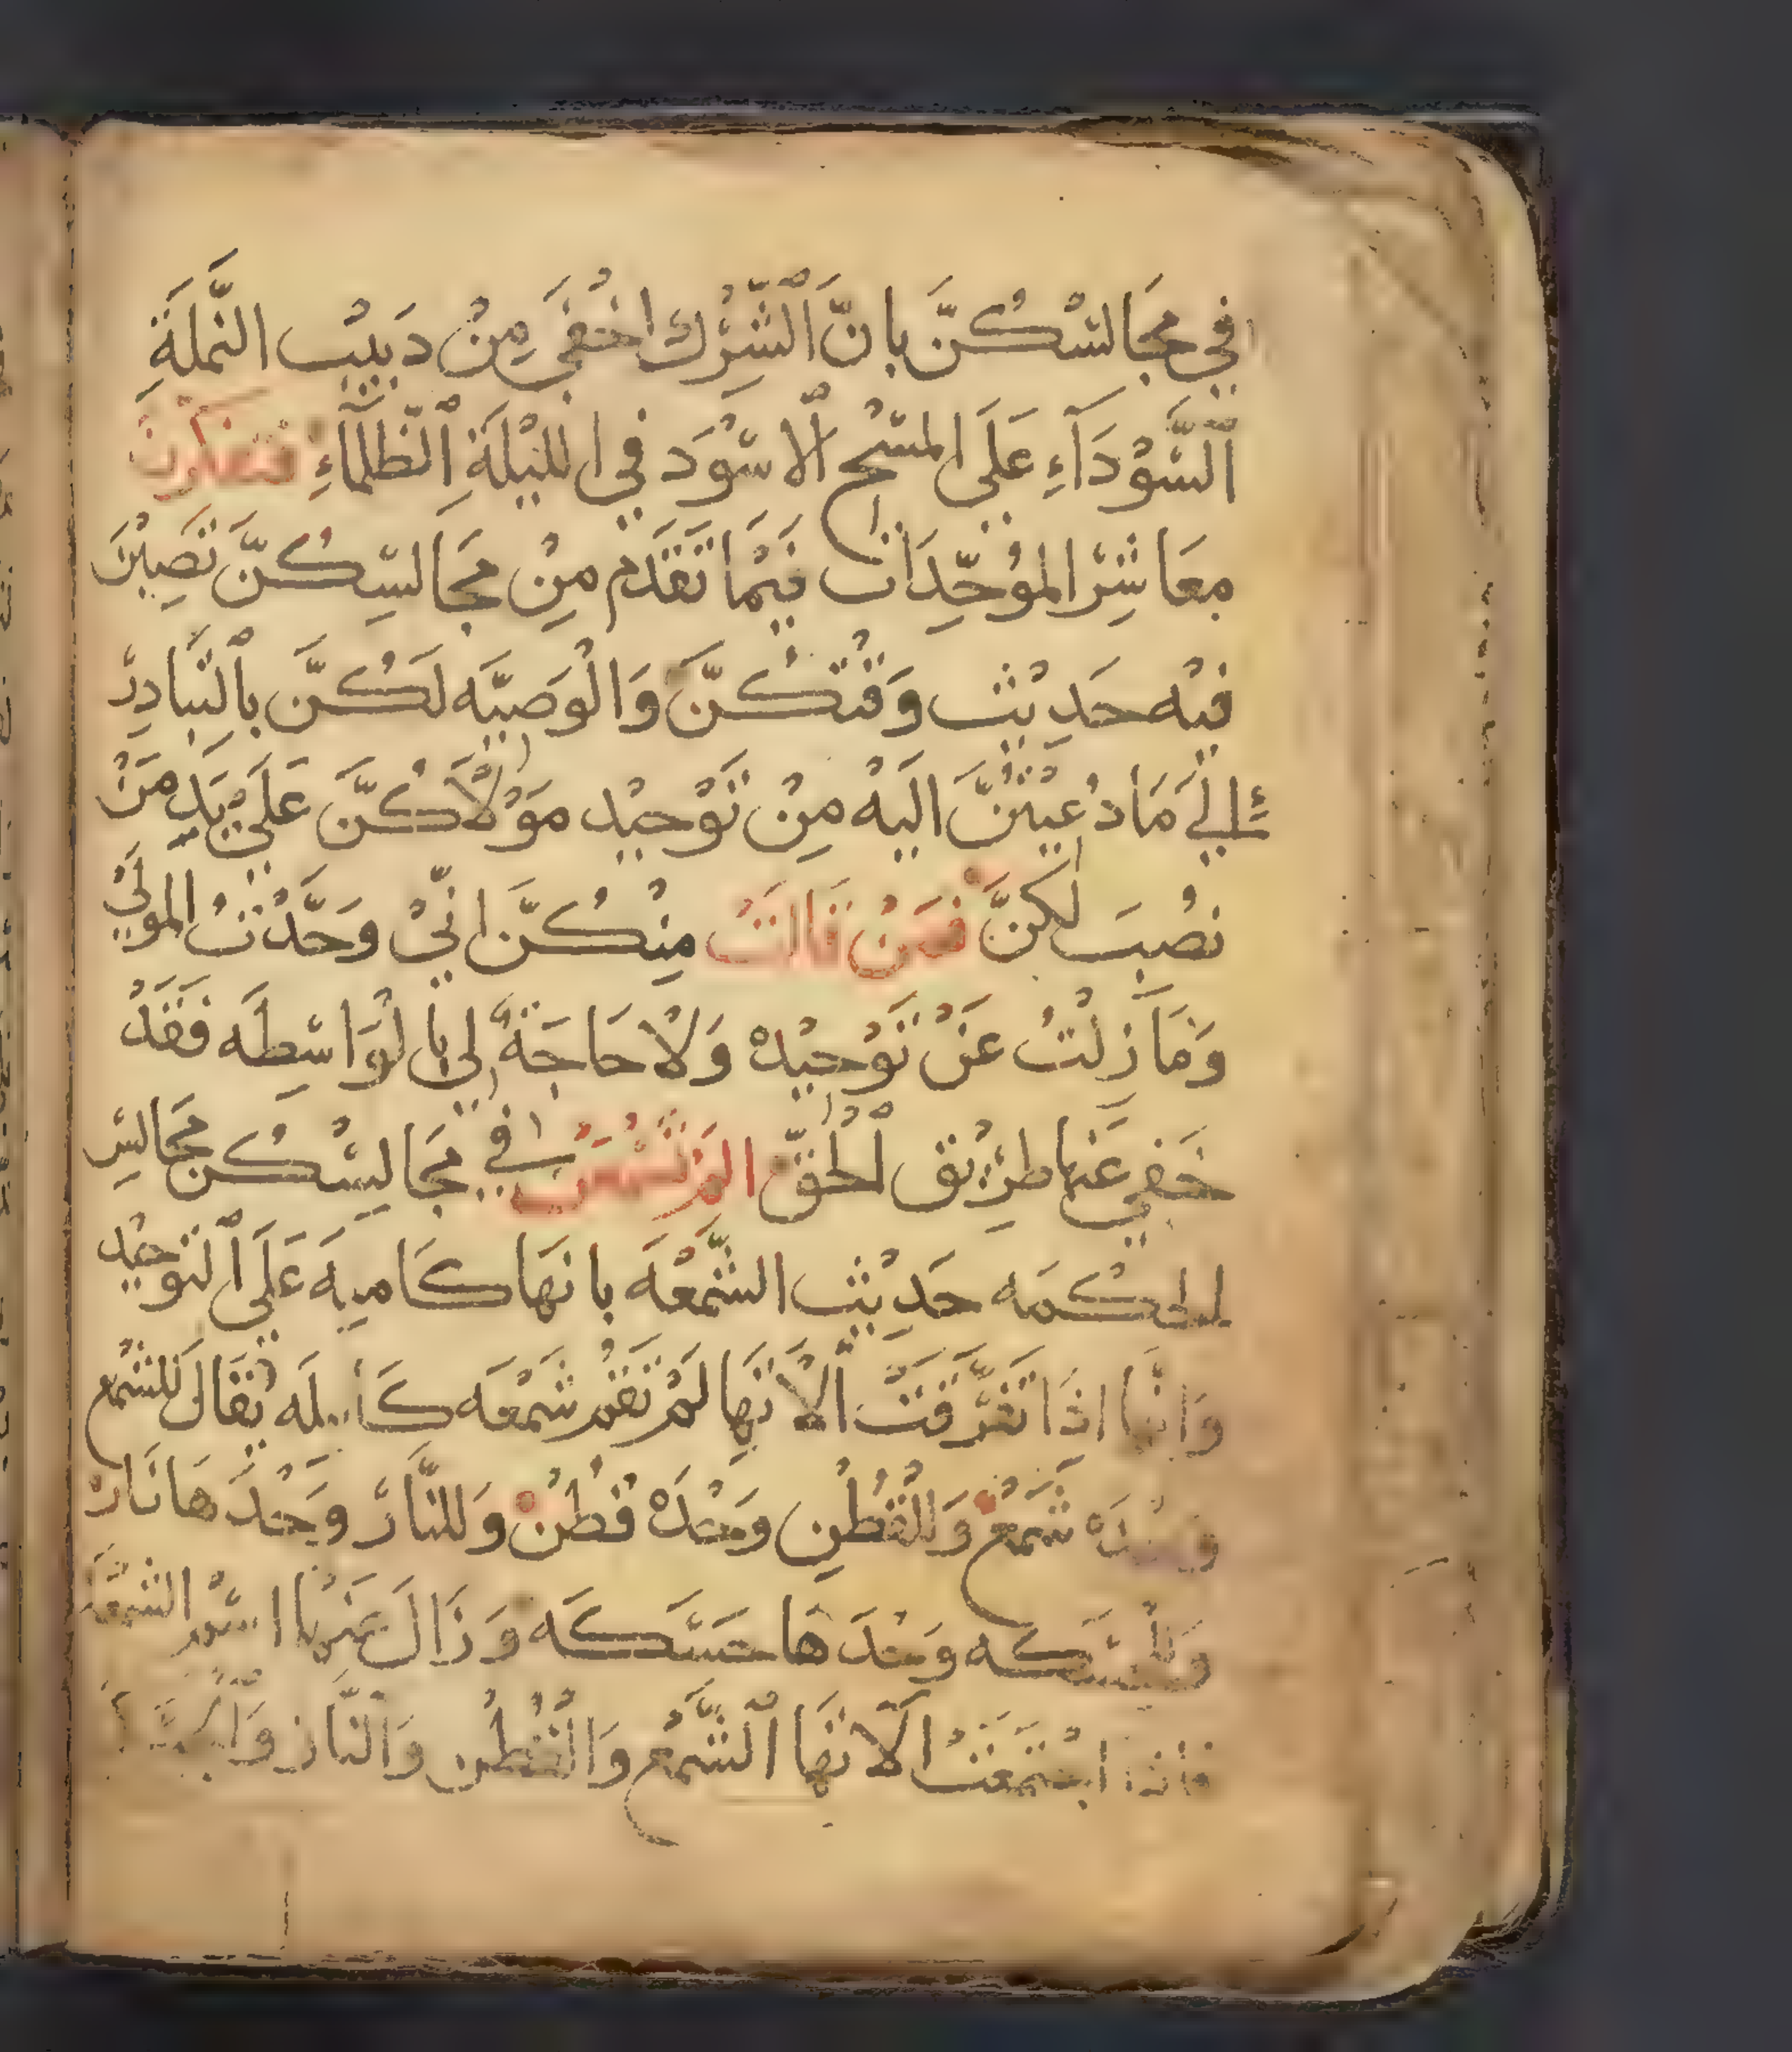 فِي مَجَالسْكُنَّ بانَّ ٱلشِّرْك اخْفَي مِنْ دَبيْب النَّملَةِ
ٱلسَّوْدَآءِ عَلَي المسْح ٱلاسْوَد في الليْلَةِ ٱلظَّلمآءِ فتفكرن
معَاشِرْ الموُحِّدَات فيْمَا تَقَدَّم مِنْ مجَالسِكُنَّ تَصِيْبْنَ
فيْه حَدِيْث وَقْتكُنَّ وَالْوَصيَّه لَكُنَّ بِالتبادِرْ
إِلي مَا دُعيْتنَّ اليْه مِنْ تَوْحيْد موْلاكُنَّ عَلَي يَدِ مَنْ
نصُبَ لكنَّ فمَنْ قَالَتْ مِنْكُنَّ انِّيْ وَحَّدْتُ الموليْ
وَمَا زلْتُ عَنْ تَوْحيْدهْ وَلاْ حَاجَةً لي بالْوَاسِطَه فَقَدْ
خَفي عَنها طرِيْق ٱلْحَقّ المْ تسْمَعْن في مجَالِسْكُن مجَالسِ
الحكْمَه حَدِيْث الشَّمْعَه بانهَا كَامِيه عَلَي ٱلتوحيْد
وَانَّها اذَا تفَرَّقَتْ ٱلاتهَا لمْ تَقُم شَمْعَه كَامله يُقَالَ للشمْع
وحْدَه شَمْعْ وَللْقُطْنِ وحْدَهْ قطْنْ وَللنَّارْ وحْدَهَا نَارْ
وَللْحسَكه وحْدَهَا حسَكَه وَزَالَ عَنْها اسْم الشمْعَه
فاذا اجْتمَعَتْ ٱلاتهَا ٱلشَّمْع وَالْقُطْن وَالنَّار وَٱلْحسَكَه